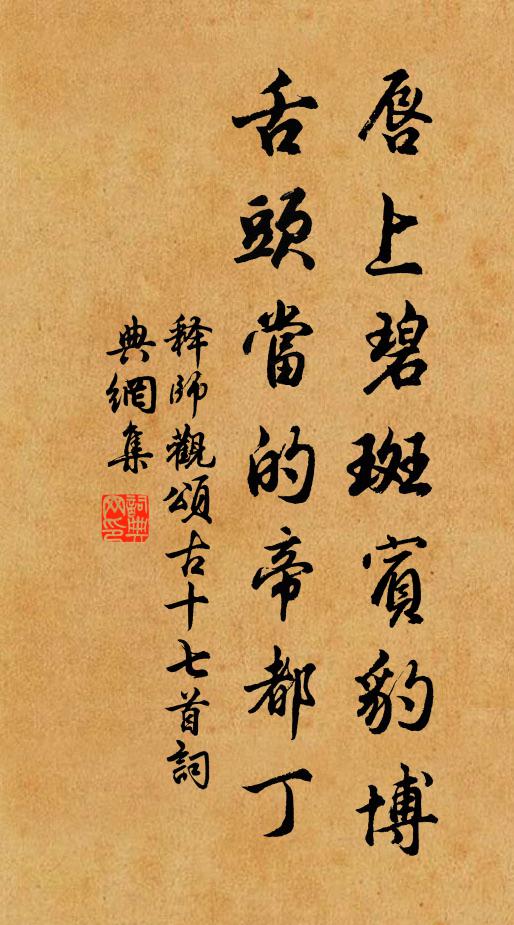 唇上碧斑賓豹博
舌頭當的帝都丁
释師觀頌古十七首詞
典網集
詞典
网印